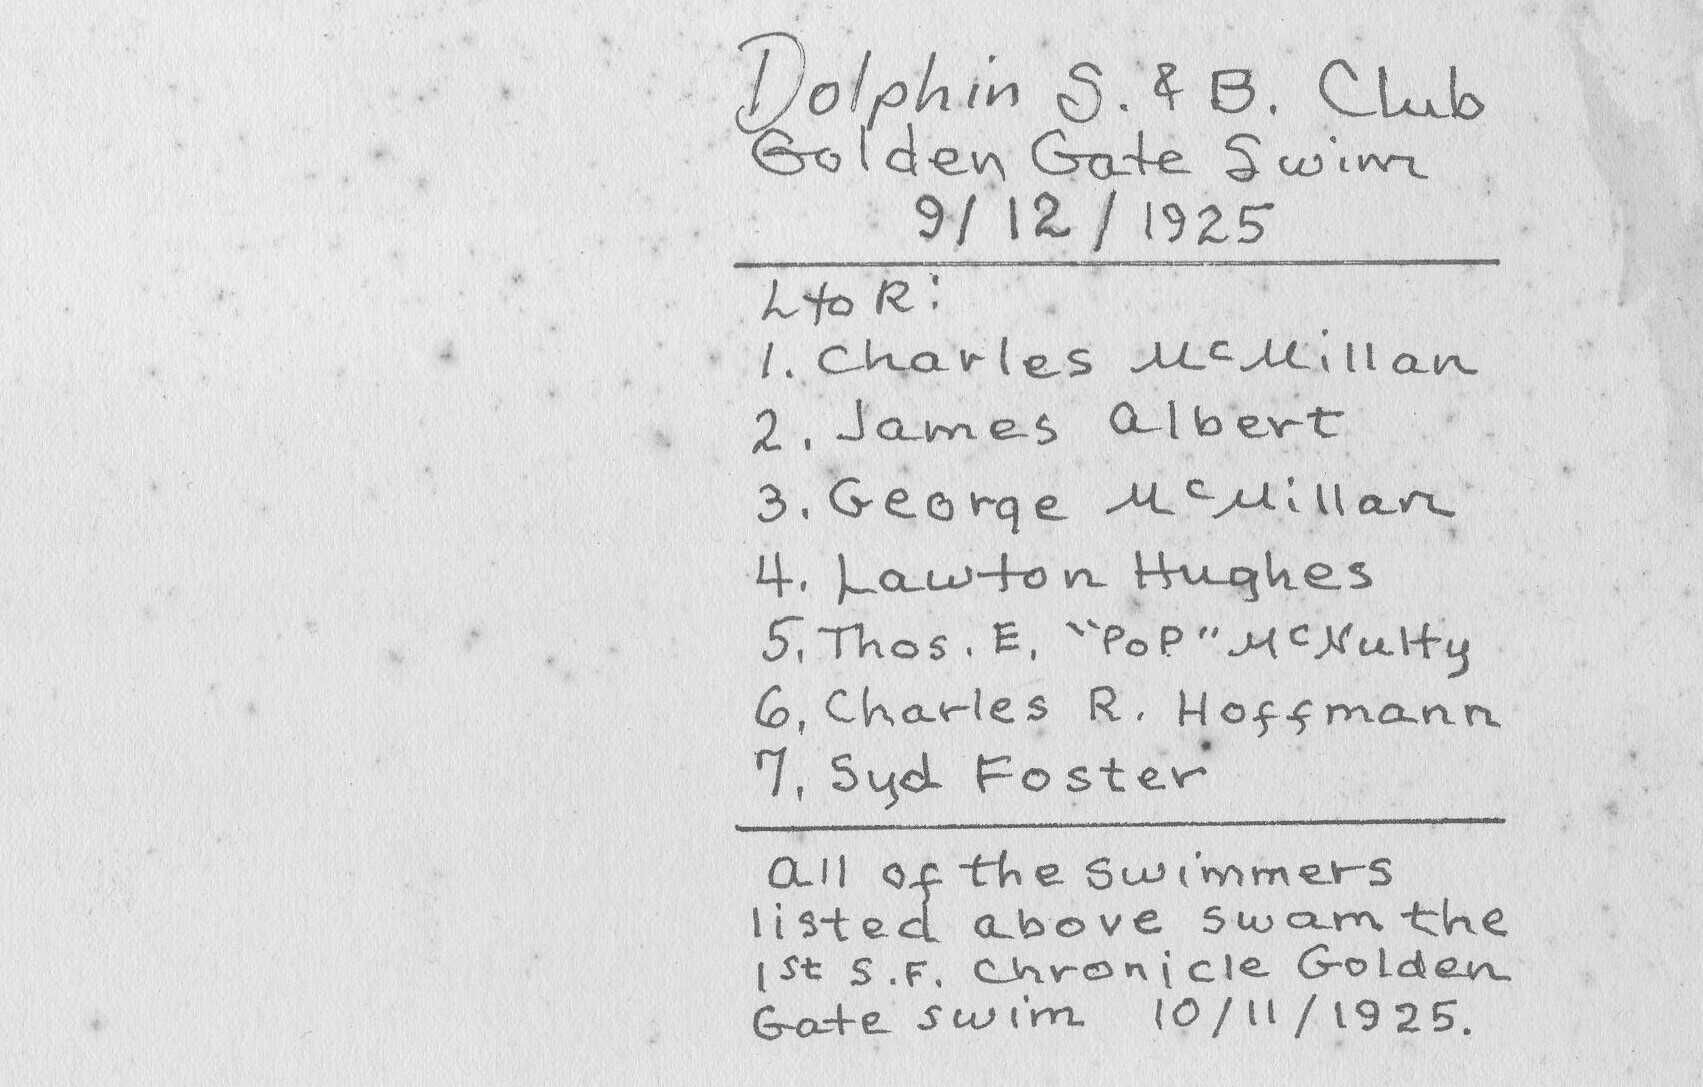 Dolphin S. & B. Club
Golden Gate Swim
9/12/1925
L to R:
1. Charles McMillan
2. James Albert
3. George McMillan
4. Lawton Hughes
5. Thos. E. "PoP" McNulty
6. Charles R. Hoffmann
7. Syd Foster
All of the swimmers
listed above swam the
1st S.F. Chronicle Golden
Gate swim 10/11/1925.